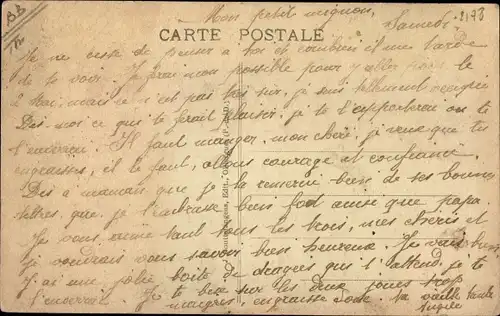 Mon petit mignon,
Samedi
CARTE POSTALE
Je ne cesse de penser à toi et combien il me tarde
de te voir. Je ferai mon possible pour y aller pour le
mai, mais ce n'est pas très sûr, je suis tellement occupée
Dis-moi ce qui te ferait plaisir, je te l'apporterai ou te
l'enverrai. Il faut manger, mon chéri, je veux que tu
engraisses, il le faut, allons courage et confiance.
Dis à maman que je la remercie bien de ses bonnes
lettres, que je l'embrasse bien fort ainsi que papa.
Je vous aime tant tous les trois, mes chéris et
je voudrais vous savoir bien heureux. Je vais bien
J'ai une jolie boîte de dragées qui t'attend, je te
l'enverrai. Je te bise sur les deux joues trop
maigres, engraisse donc. Ta vieille tante